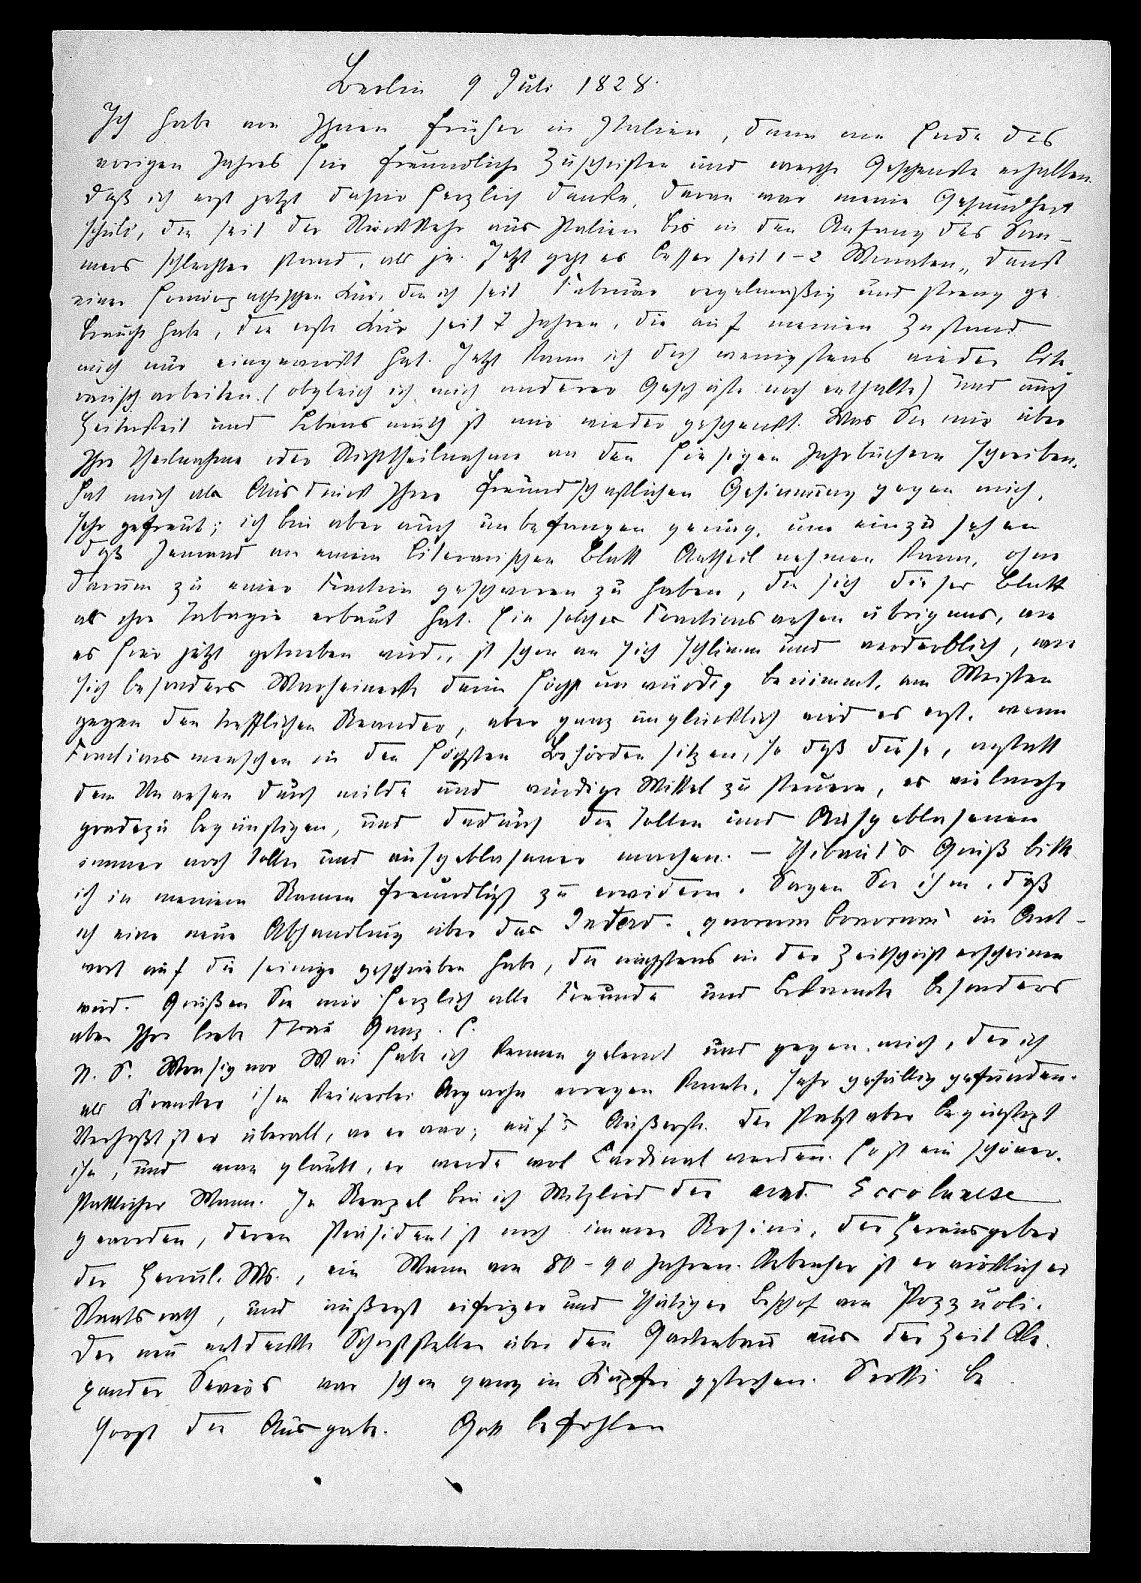 Berlin 9 Juli 1828.
Ich habe von Ihnen früher in Italien, dann am Ende des
vorigen Jahres hier freundliche Zuschriften und werthe Geschenke erhalten.
Daß ich erst jetzt dafür herzlich danke, daran war meine Gesundheit
schuld, die seit der Rückkehr aus Italien bis in den Anfang des Som-
mers schlechter stand, als je. Jetzt geht es besser seit 1-2 Monaten, dank
einer homöopathischen Kur, die ich seit Februar regelmäßig und streng ge
braucht habe, die erste Kur seit 7 Jahren, die auf meinen Zustand
auch nur eingewirkt hat. Jetzt kann ich doch wenigstens wieder lite
rarisch arbeiten (obgleich ich mich anderer Geschäfte noch enthalte) und auch
Heiterkeit und Lebensmuth ist mir wieder geschenkt. Was Sie mir über
Ihre Theilnahme oder Nichttheilnahme an den hiesigen Jahrbüchern schreiben,
hat mich als Ausdruck Ihrer freundschaftlichen Gesinnung gegen mich,
sehr gefreut; ich bin aber auch unbefangen genug, um einzusehen
daß Jemand an einem literarischen Blatt Antheil nehmen kann, ohne
darum zu einer Faction geschworen zu haben, die sich dieser Blatt
als ihre Tabagie erbaut hat. Ein solches Factionswesen übrigens, wie
es hier jetzt getrieben wird, ist schon an sich schlimm und verderblich, wie
sich besonders Marheineke darin höchst unwürdig benimmt, am Meisten
gegen den trefflichen Neander, aber ganz unglücklich wird es erst, wenn
Factionsmenschen in den höchsten Behörden sitzen, so daß diese, anstatt
dem Unwesen durch milde und würdige Mittel zu steuern, es vielmehr
gradezu begünstigen, und dadurch die Tollen und Aufgeblasenen
immer noch toller und aufgeblasener machen. – Thibaut's Gruß bitte
ich in meinem Namen freundlichst zu erwidern. Sagen Sie ihm, daß
ich eine neue Abhandlung über das Interd. quorum bonorum in Ant-
wort auf die seinige geschrieben habe, die nächstens in der Zeitschrift erscheinen
wird. Grüßen Sie mir herzlich alle Freunde und Bekannte besonders
aber Ihre liebe Frau Ganz. S.
N. S. Monsignor Mai habe ich kennen gelernt und gegen mich, der ich
als Kranker ihm keinerlei Argwohn erregen konnte, sehr gefällig gefunden.
Verhaßt ist er überall, wo er war, auf's Äußerste. Der Pabst aber begünstigt
ihn, und man glaubt, er werde wol Cardinal werden. Er ist ein schöner,
stattlicher Mann. In Neapel bin ich Mitglied der acad. Ercolanese
geworden, deren Präsident ist noch immer Rosini, der Herausgeber
der Hercul. Mss., ein Mann von 80-90 Jahren. Nebenher ist er wirklicher
Staatsrath, und äußerst eifriger und thätiger Bischof von Pozzuoli.
Der neu entdeckte Schriftsteller über den Gartenbau aus der Zeit Ale
xander Severs war schon ganz in Kupfer gestochen. Scotti be
sorgt die Ausgabe. Gott befohlen